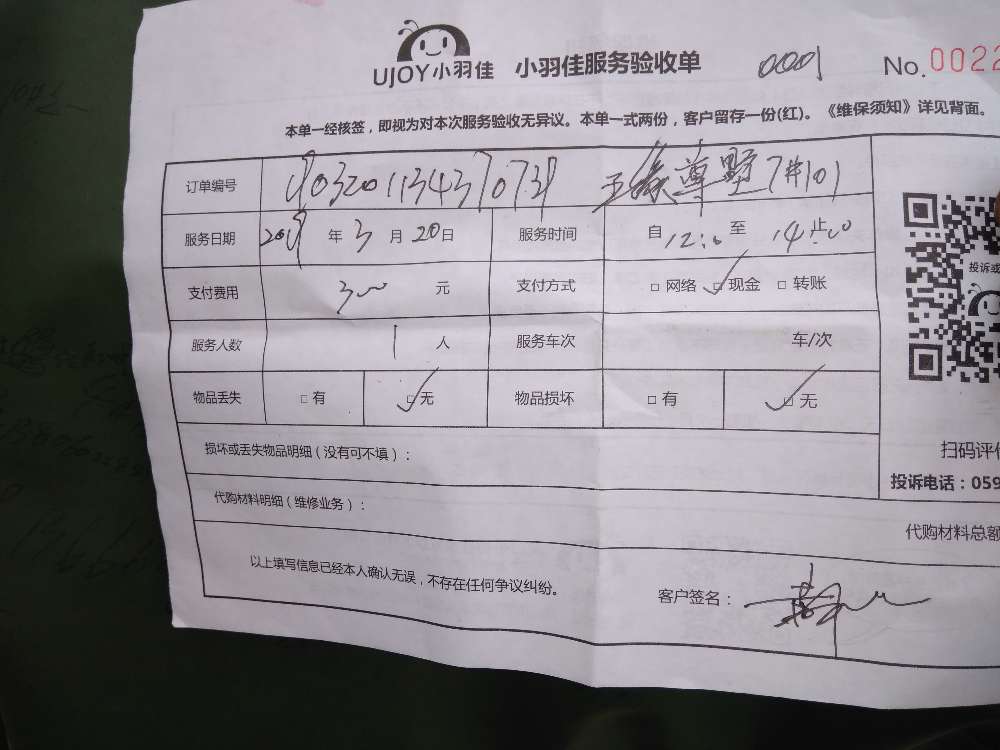 UJOY小羽佳 小羽佳服务验收单 0001 No.0022
本单一经核签，即视为对本次服务验收无异议。本单一式两份，客户留存一份(红)。《维保须知》详见背面。
订单编号 尊墅7#101
服务日期 2019年3月20日 服务时间 自12:00至14:00止
支付费用 300元 支付方式 □网络 ☑现金 □转账
服务人数 1人 服务车次 车/次
物品丢失 □有 ☑无 物品损坏 □有 ☑无
损坏或丢失物品明细（没有可不填）：
代购材料明细（维修业务）：
代购材料总额
以上填写信息已经本人确认无误，不存在任何争议纠纷。
客户签名：
投诉或
扫码评价
投诉电话：059